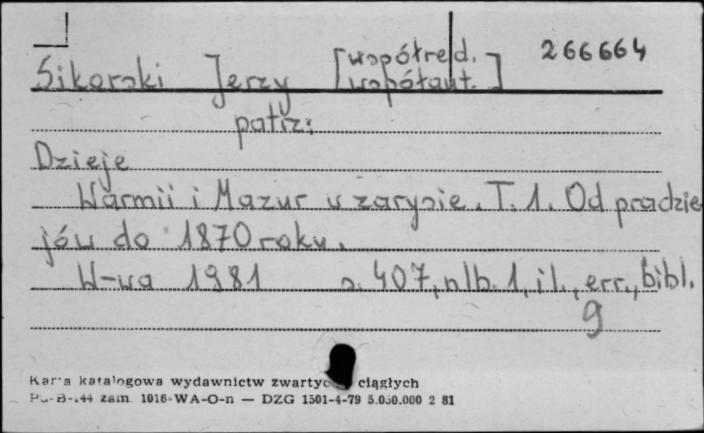 266664
Sikorski Jerzy [współred. współaut.]
patrz:
Dzieje
Warmii i Mazur w zarysie. T. 1. Od pradzie
jów do 1870 roku.
W-wa 1981 s. 407, nlb. 1, il., err., bibl.
9
Karta katalogowa wydawnictw zwartych ciągłych
Pu-B-144 zam. 1016 WA-O-n — DZG 1501-4-79 5.050.000 2 81